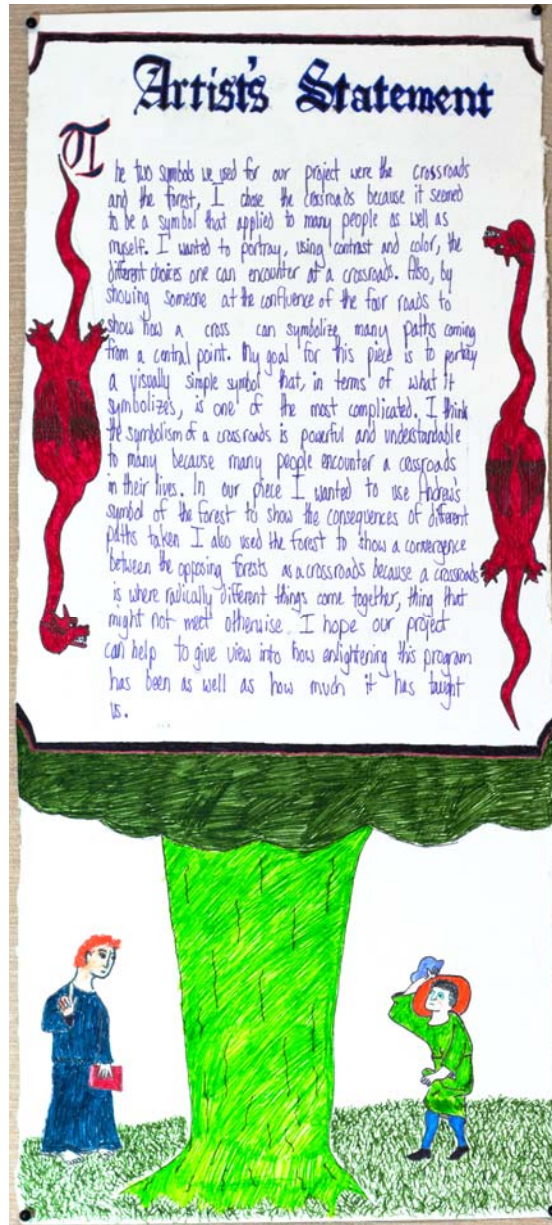 Artist's Statement
The two symbols we used for our project were the crossroads
and the forest, I chose the crossroads because it seemed
to be a symbol that applied to many people as well as
myself. I wanted to portray, using contrast and color, the
different choices one can encounter at a crossroads. Also, by
showing someone at the confluence of the four roads to
show how a cross can symbolize many paths coming
from a central point. My goal for this piece is to portray
a visually simple symbol that, in terms of what it
symbolizes, is one of the most complicated. I think
the symbolism of a crossroads is powerful and understandable
to many because many people encounter a crossroads
in their lives. In our piece I wanted to use Andrew's
symbol of the forest to show the consequences of different
paths taken I also used the forest to show a convergence
between the opposing forests as a crossroads because a crossroads
is where radically different things come together, thing that
might not meet otherwise. I hope our project
can help to give view into how enlightening this program
has been as well as how much it has taught
us.